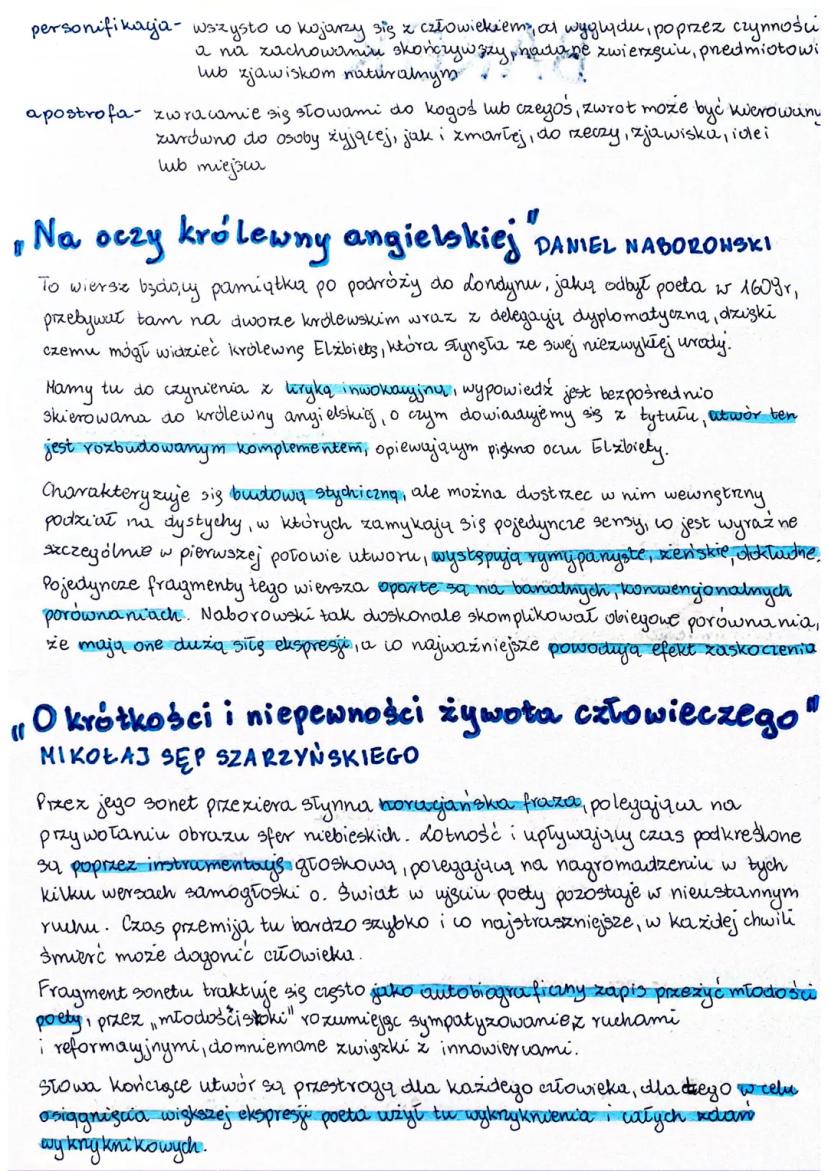 personifikacja- wszysto co kojarzy się z człowiekiem, od wyglądu, poprzez czynności
a na zachowaniu skończywszy, nadane zwierzęciu, przedmiotowi
lub zjawiskom naturalnym
apostrofa- zwracanie się słowami do kogoś lub czegoś, zwrot może być kierowany
zarówno do osoby żyjącej, jak i zmarłej, do rzeczy, zjawiska, idei
lub miejsca
"Na oczy królewny angielskiej" DANIEL NABOROWSKI
To wiersz będący pamiątką po podróży do Londynu, jaką odbył poeta w 1609r,
przebywał tam na dworze królewskim wraz z delegacją dyplomatyczną, dzięki
czemu mógł widzieć królewnę Elżbietę, która słynęła ze swej niezwykłej urody.
Mamy tu do czynienia z liryką inwokacyjną, wypowiedź jest bezpośrednio
skierowana do królewny angielskiej, o czym dowiadujemy się z tytułu, utwór ten
jest rozbudowanym komplementem, opiewającym piękno oczu Elżbiety.
Charakteryzuje się budową stychiczną, ale można dostrzec w nim wewnętrzny
podział na dystychy, w których zamykają się pojedyncze sensy, co jest wyraźne
szczególnie w pierwszej połowie utworu, występują rymy parzyste, żeńskie, dokładne.
Pojedyncze fragmenty tego wiersza oparte są na banalnych, konwencjonalnych
porównaniach. Naborowski tak doskonale skomplikował obiegowe porównania,
że mają one dużą siłę ekspresji, a co najważniejsze powodują efekt zaskoczenia
"O krótkości i niepewności żywota człowieczego"
MIKOŁAJ SĘP SZARZYŃSKIEGO
Przez jego sonet przeziera słynna horacjańska fraza, polegająca na
przywołaniu obrazu sfer niebieskich. Lotność i upływający czas podkreślone
są poprzez instrumentację głoskową, polegającą na nagromadzeniu w tych
kilku wersach samogłoski o. Świat w ujęciu poety pozostaje w nieustannym
ruchu. Czas przemija tu bardzo szybko i co najstraszniejsze, w każdej chwili
śmierć może dogonić człowieka.
Fragment sonetu traktuje się często jako autobiograficzny zapis przeżyć młodości
poety, przez "młodości" rozumiejąc sympatyzowanie z ruchami
i reformacyjnymi, domniemane związki z innowiercami.
Słowa kończące utwór są przestrogą dla każdego człowieka, dlatego w celu
osiągnięcia większej ekspresji poeta użył tu wykrzyknienia i całych zdań
wykrzyknikowych.